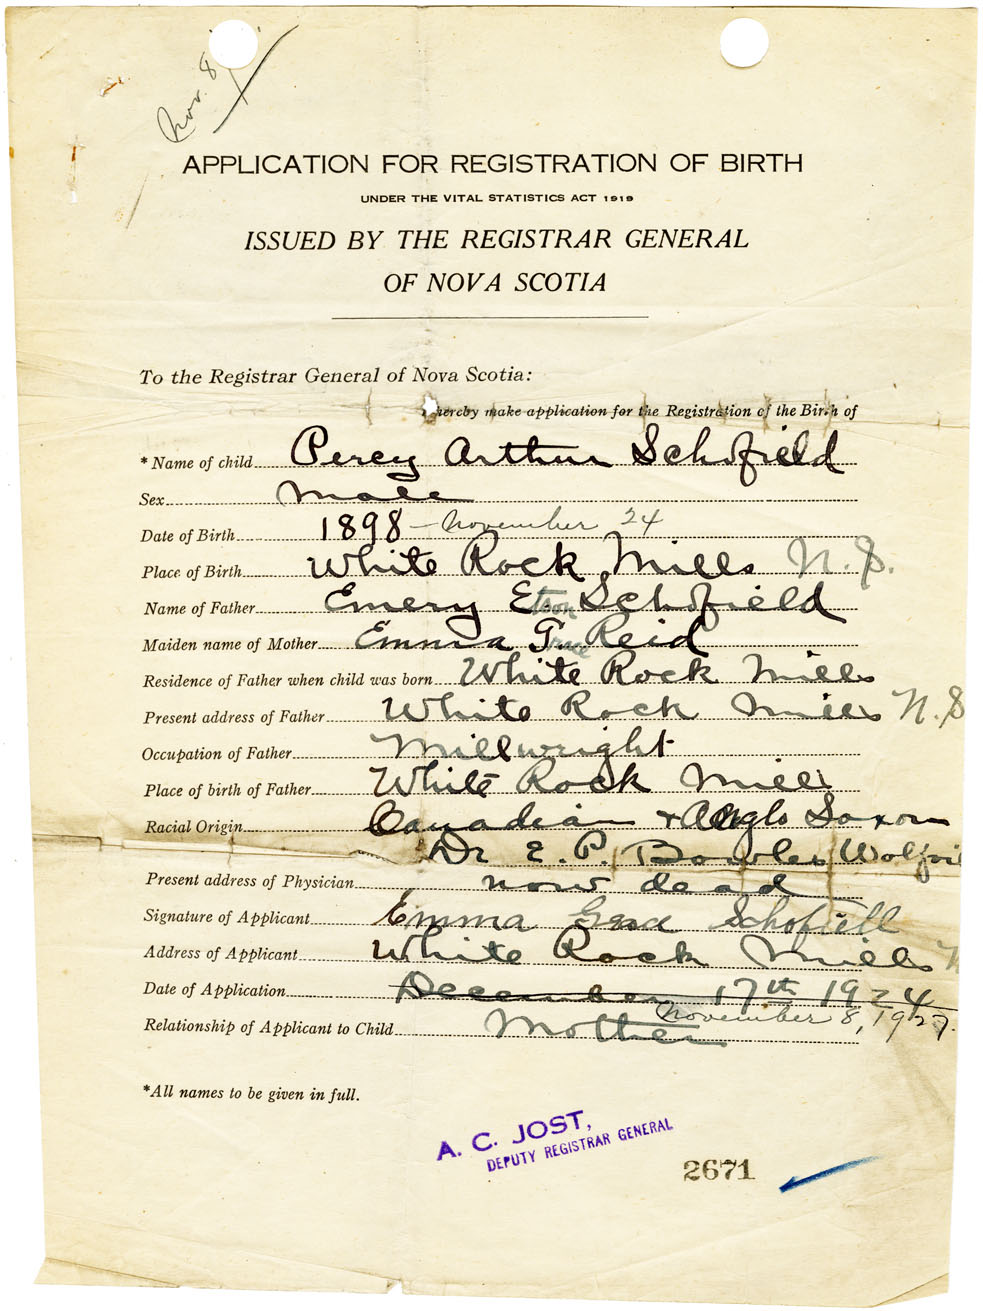 Nov. 8
APPLICATION FOR REGISTRATION OF BIRTH
UNDER THE VITAL STATISTICS ACT 1919
ISSUED BY THE REGISTRAR GENERAL
OF NOVA SCOTIA
To the Registrar General of Nova Scotia:
hereby make application for the Registration of the Birth of
*Name of child Percy Arthur Schofield
Sex Male
Date of Birth 1898 - November 24
Place of Birth White Rock Mills N.S.
Name of Father Emery Etson Schofield
Maiden name of Mother Emma G.race Reid
Residence of Father when child was born White Rock Mills
Present address of Father White Rock Mills N.S
Occupation of Father Millwright
Place of birth of Father White Rock Mills
Racial Origin Canadian + Anglo Saxon
Dr E. P. Bowles
Present address of Physician now dead
Signature of Applicant Emma Schofield
Address of Applicant White Rock Mills N
Date of Application December 17th 1924
November 8, 1927.
Relationship of Applicant to Child Mother
*All names to be given in full.
A. C. JOST,
DEPUTY REGISTRAR GENERAL
2671